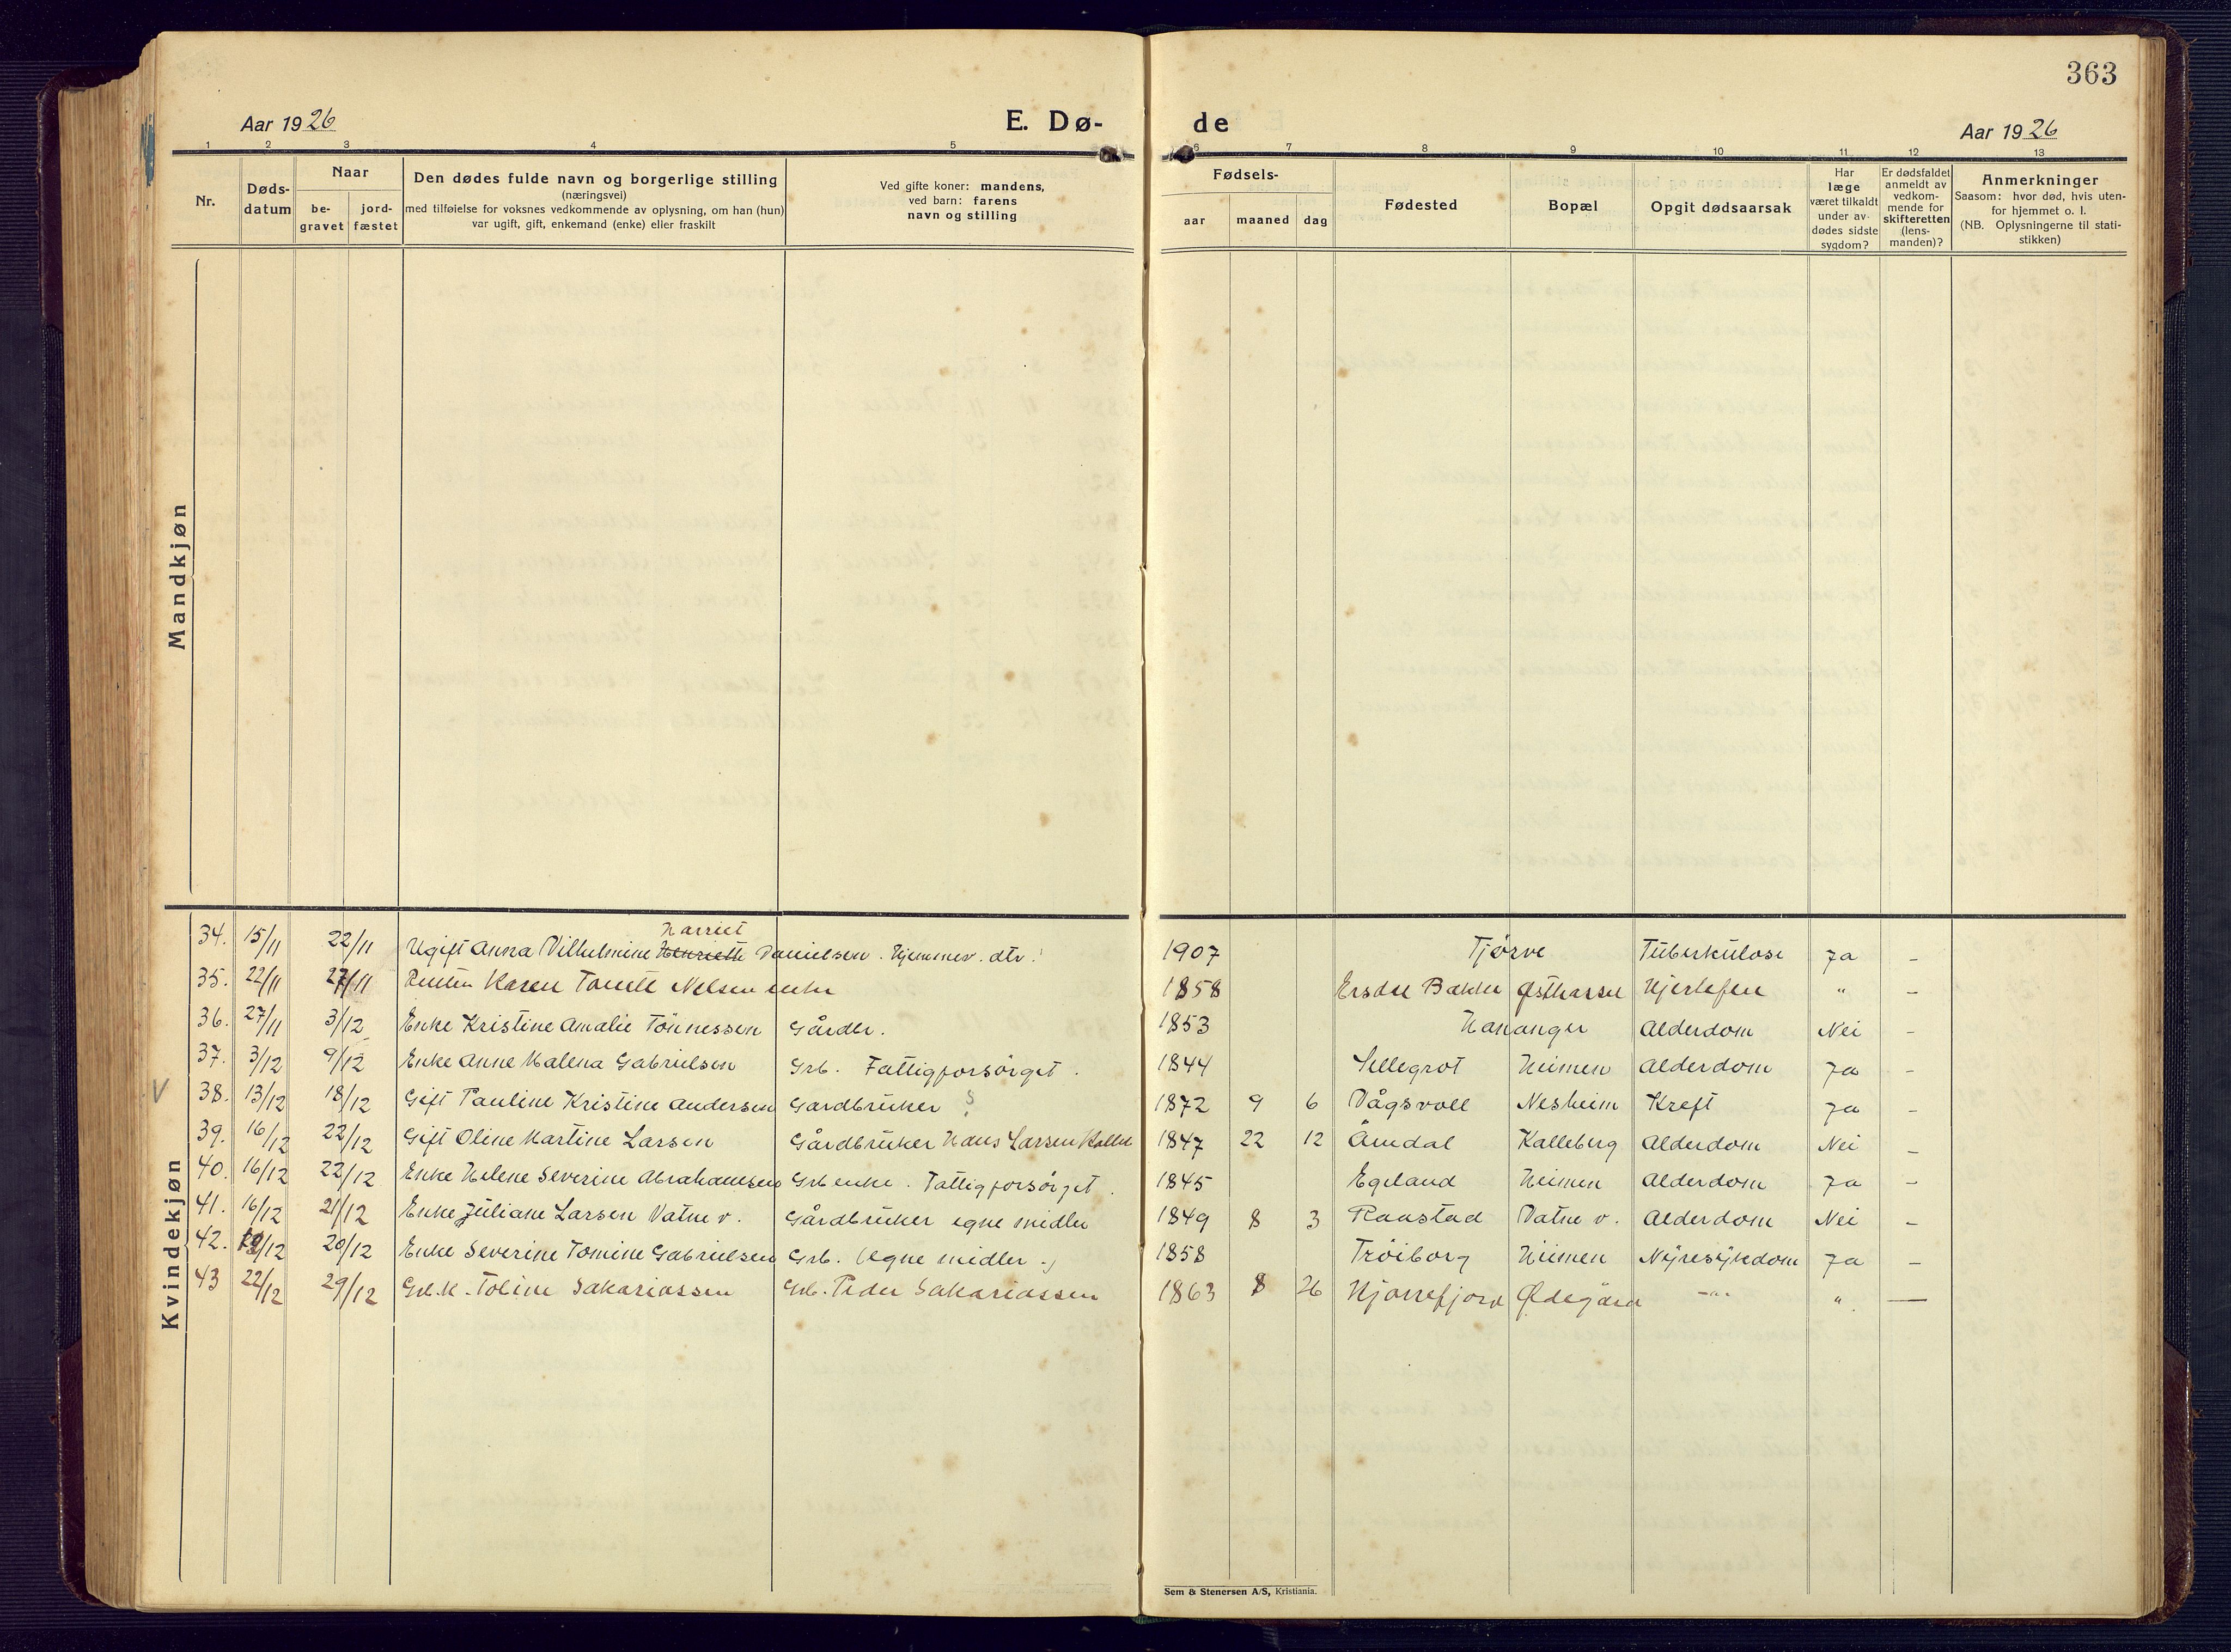 363
Aar 1926
E. Dø-
de
Aar 1926
1 2 3 4 5 6 7 8 9 10 11 12 13
Nr.
Døds-
datum
Naar
be-
gravet
jord-
fæstet
Den dødes fulde navn og borgerlige stilling
(næringsvei)
med tilføielse for voksnes vedkommende av oplysning, om han (hun)
var ugift, gift, enkemand (enke) eller fraskilt
Ved gifte koner: mandens,
ved barn: farens
navn og stilling
Fødsels-
aar
maaned
dag
Fødested
Bopæl
Opgit dødsaarsak
Har
læge
været tilkaldt
under av-
dødes sidste
sygdom?
Er dødsfaldet
anmeldt av
vedkom-
mende for
skifteretten
(lens-
manden)?
Anmerkninger
Saasom: hvor død, hvis uten-
for hjemmet o. l.
(NB. Oplysningerne til stati-
stikken)
Mandkjøn
Kvindekjøn
Harriet
34. 15/11 22/11 Ugift Anna Vilhelmine Henriette Danielsen. Hjemmev. dtr. 1907 Tjørve Tuberkulose Ja -
35. 22/11 27/11 Karen Tomette Nelsen enke 1858 Ersdal Bakke Østhassel Hjertefeil " -
36. 27/11 3/12 Enke Kristine Amalie Tönnessen Gårdbr. 1853 Hananger Alderdom Nei -
37. 3/12 9/12 Enke Anne Malena Gabrielsen Grb. Fattigforsörget. 1844 Sellegrot Heimen Alderdom Ja -
V 38. 13/12 18/12 Gift Pauline Kristine Andersen Gardbruker ? 1872 9 6 Vågsvoll Nesheim Kreft Ja -
39. 16/12 22/12 Gift Oline Martine Larsen Gårdbruker Hans Larsen Kalleb 1847 22 12 Åmdal Kalleberg Alderdom Nei -
40. 16/12 22/12 Enke Helene Severine Abrahamsen Grb enke. Fattigforsörget. 1845 Egeland Heimen Alderdom Ja -
41. 16/12 21/12 Enke Juliane Larsen Vatne v. Gårdbruker egne midler 1849 8 3 Raastad Vatne v. Alderdom Nei -
42. /12 20/12 Enke Severine Tomine Gabrielsen Grb. (egne midler.) 1858 Tröiborg Heimen Nyresykdom Ja -
43 22/12 29/12 Grb.k. Toline Sakariassen Grb. Peder Sakariassen 1863 8 26 Hjörrefjord Ødegård -"- " —
Sem & Stenersen A/S, Kristiania.